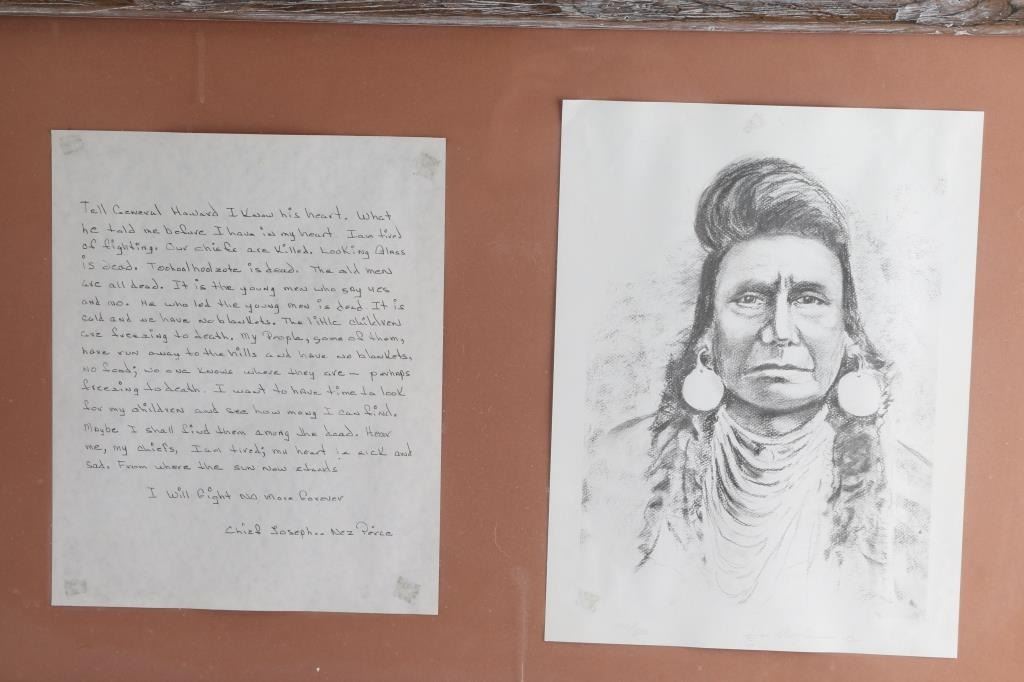 Tell General Howard I Know his heart. What
he told me before I have in my heart. I am tired
of fighting. Our chiefs are killed. Looking Glass
is dead. Toohoolhoolzote is dead. The old men
are all dead. It is the young men who say yes
and no. He who led the young men is dead It is
cold and we have no blankets. The little children
are freezing to death. My People, some of them,
have run away to the hills and have no blankets,
no food; no one knows where they are — perhaps
freezing to death. I want to have time to look
for my children and see how many I can find.
Maybe I shall find them among the dead. Hear
me, my chiefs, I am tired; my heart is sick and
sad. From where the sun now stands
I Will fight no more forever
Chief Joseph.. Nez Perce